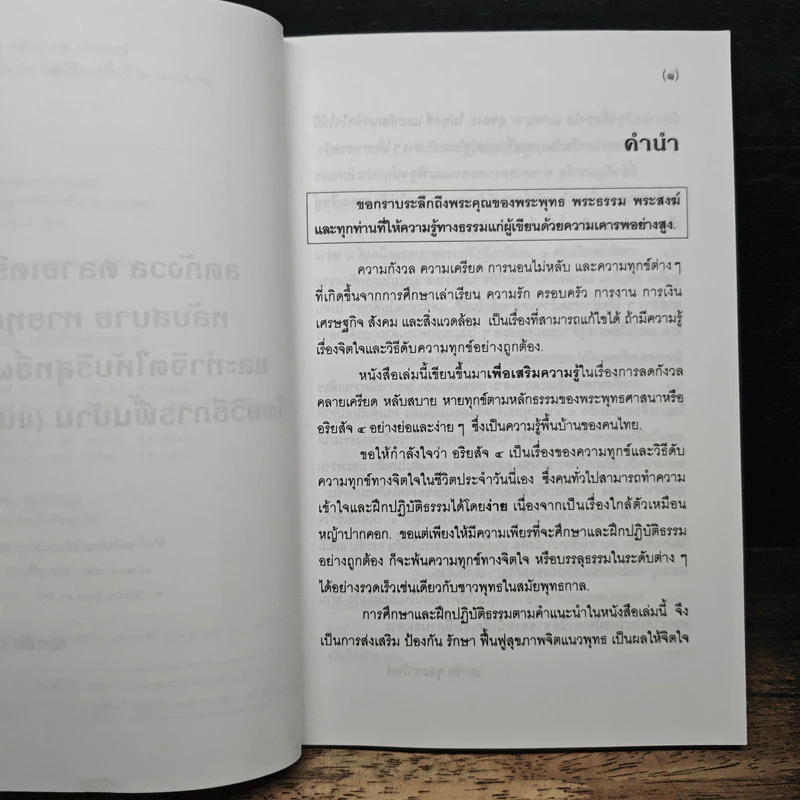 (๑)
คำนำ
ขอกราบระลึกถึงพระคุณของพระพุทธ พระธรรม พระสงฆ์
และทุกท่านที่ให้ความรู้ทางธรรมแก่ผู้เขียนด้วยความเคารพอย่างสูง.
ความกังวล ความเครียด การนอนไม่หลับ และความทุกข์ต่าง ๆ
ที่เกิดขึ้นจากการศึกษาเล่าเรียน ความรัก ครอบครัว การงาน การเงิน
เศรษฐกิจ สังคม และสิ่งแวดล้อม เป็นเรื่องที่สามารถแก้ไขได้ ถ้ามีความรู้
เรื่องจิตใจและวิธีดับความทุกข์อย่างถูกต้อง.
หนังสือเล่มนี้เขียนขึ้นมาเพื่อเสริมความรู้ในเรื่องการลดกังวล
คลายเครียด หลับสบาย หายทุกข์ตามหลักธรรมของพระพุทธศาสนาหรือ
อริยสัจ ๔ อย่างย่อและง่าย ๆ ซึ่งเป็นความรู้พื้นบ้านของคนไทย.
ขอให้กำลังใจว่า อริยสัจ ๔ เป็นเรื่องของความทุกข์และวิธีดับ
ความทุกข์ทางจิตใจในชีวิตประจำวันนี่เอง ซึ่งคนทั่วไปสามารถทำความ
เข้าใจและฝึกปฏิบัติธรรมได้โดยง่าย เนื่องจากเป็นเรื่องใกล้ตัวเหมือน
หญ้าปากคอก. ขอแต่เพียงให้มีความเพียรที่จะศึกษาและฝึกปฏิบัติธรรม
อย่างถูกต้อง ก็จะพ้นความทุกข์ทางจิตใจ หรือบรรลุธรรมในระดับต่าง ๆ
ได้อย่างรวดเร็วเช่นเดียวกับชาวพุทธในสมัยพุทธกาล.
การศึกษาและฝึกปฏิบัติธรรมตามคำแนะนำในหนังสือเล่มนี้ จึง
เป็นการส่งเสริม ป้องกัน รักษา ฟื้นฟูสุขภาพจิตแนวพุทธ เป็นผลให้จิตใจ